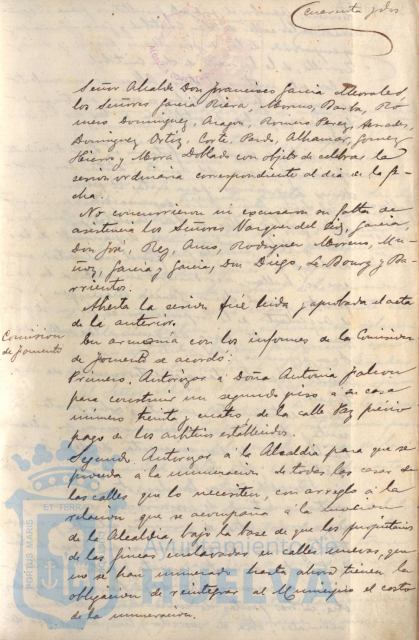 cuarenta y dos
Señor Alcalde Don Francisco Garcia Morales,
los Señores Garcia Riera, Moreno, Barba, Ro-
mero Dominguez, Aragon, Romero Perez, 
Dominguez Ortiz, Corte, Pardo, Alhamar, Gomez
Hierro y Mora Doblado con objeto de celebrar la
sesion ordinaria correspondiente al dia de la fe-
cha.
No concurrieron ni escusaron su falta de
asistencia los Señores Vazquez del Rey, Garcia,
Don José, Rey, Amo, Rodriguez Moreno, Mu-
ñoz, Garcia y Garcia, Don Diego, Le Bourg y Ba-
rrientos.
Abierta la sesion fué leida y aprobada el acta
de la anterior.
Comision
de fomento
En armonia con los informes de la Comision
de fomento se acordó:
Primero. Autorizar á Doña Antonia Falcon
para construir un segundo piso á su casa
número treinta y cuatro de la calle Paz previo
pago de los arbitrios establecidos.
Segundo. Autorizar á la Alcaldia para que se
proceda á la numeracion de todas las casas de
las calles que lo necesiten, con arreglo á la
relacion que se acompaña á la mocion
de la Alcaldia bajo la base de que los propietarios
de las fincas enclavadas en calles nuevas, que
no se han numerado hasta ahora tienen la
obligacion de reintegrar al Municipio el costo
de la numeracion.
PORTUS MARIS
ET TERRAE
Ayuntamiento de
HUELVA